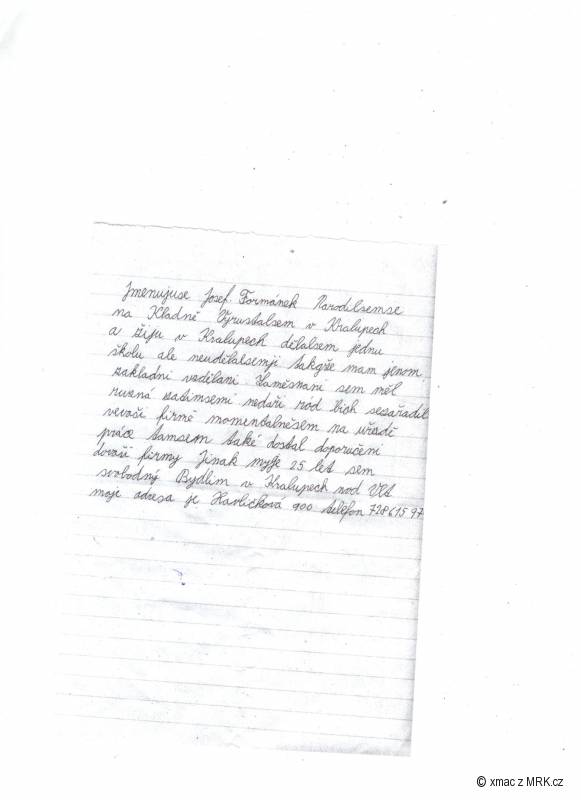 Jmenujuse Josef Formánek Narodilsemse
na Kladně Vyrustalsem v Kralupech
a žiju v Kralupech dělalsem jednu
školu ale neudělalsemji takgže mam jenom
zakladni vzdělani. Zaměstnani sem měl
ruzná zatimsemi nedaři ród bich sesařadil
vevaší firmě momentalněsem na uřadě
práce tamsem také dostal doporučeni
dovaší firmy Jinak myje 25 let sem
svobodný Bydlim v Kralupech nod Vlt
moje adresa je Havličková 900 teléfon 728615 97
© xmac z MRK.cz